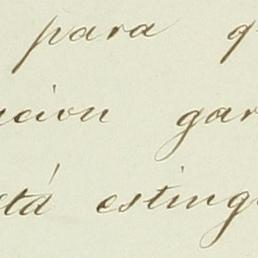 para q
cion gar
stá esting